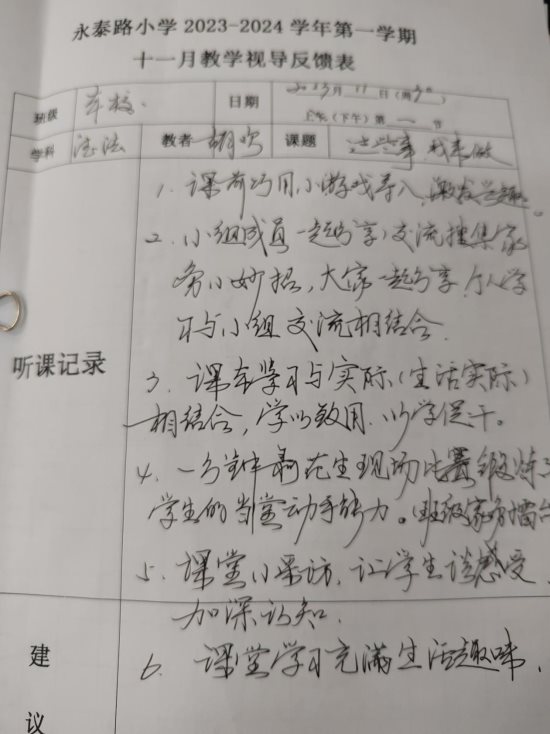 永泰路小学 2023-2024 学年第一学期
十一月教学视导反馈表
班级
日期
2023年11月
日（周
上午（下午）第一节
学科 道法 教者 课题 这些事我来做
1. 课前巧用小游戏导入，激发兴趣。
2. 小组成员一起分享，交流搜集家
务小妙招，大家一起分享，个人学
习与小组交流相结合.
听课记录
3. 课本学习与实际（生活实际）
相结合，学以致用. 以学促干。
4. 一分钟剥花生现场比赛锻炼
学生的当堂动手能力。班级家务擂台
5. 课堂小采访，让学生谈感受，
加深认知.
建
议
6. 课堂学习充满生活趣味.